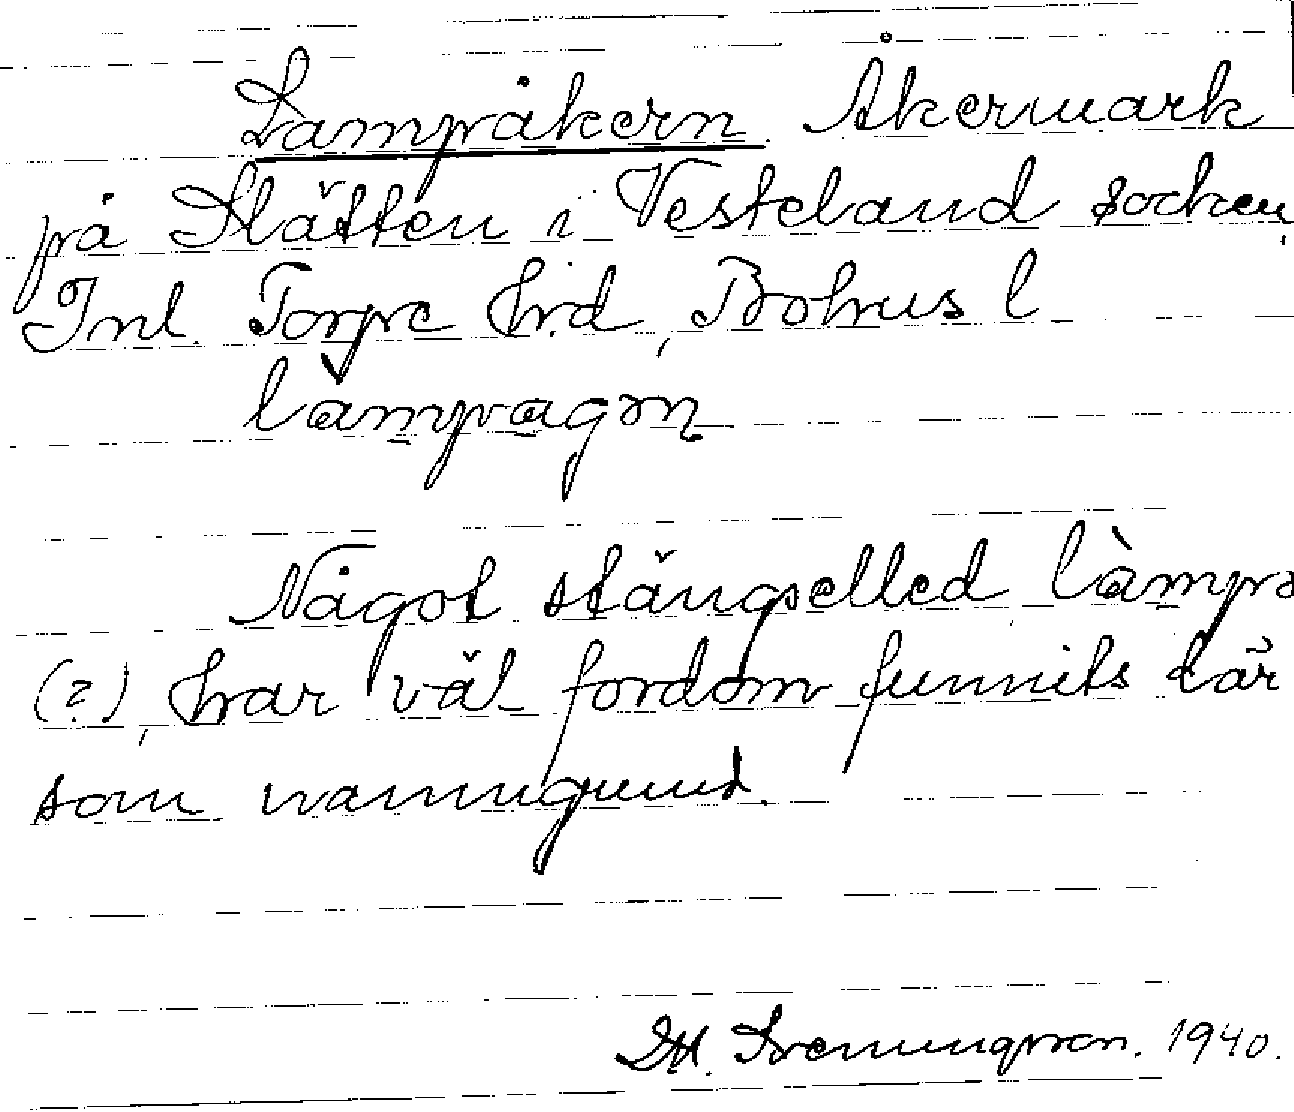 Lampåkern. Åkermark
på Slätten i Vesteland socken,
Inl. Torpe hrd, Bohus l
làmpagɔn
Något stängselled làmpa
(?), har väl fordom funnits där
som namngrund.
D.H. 1940.